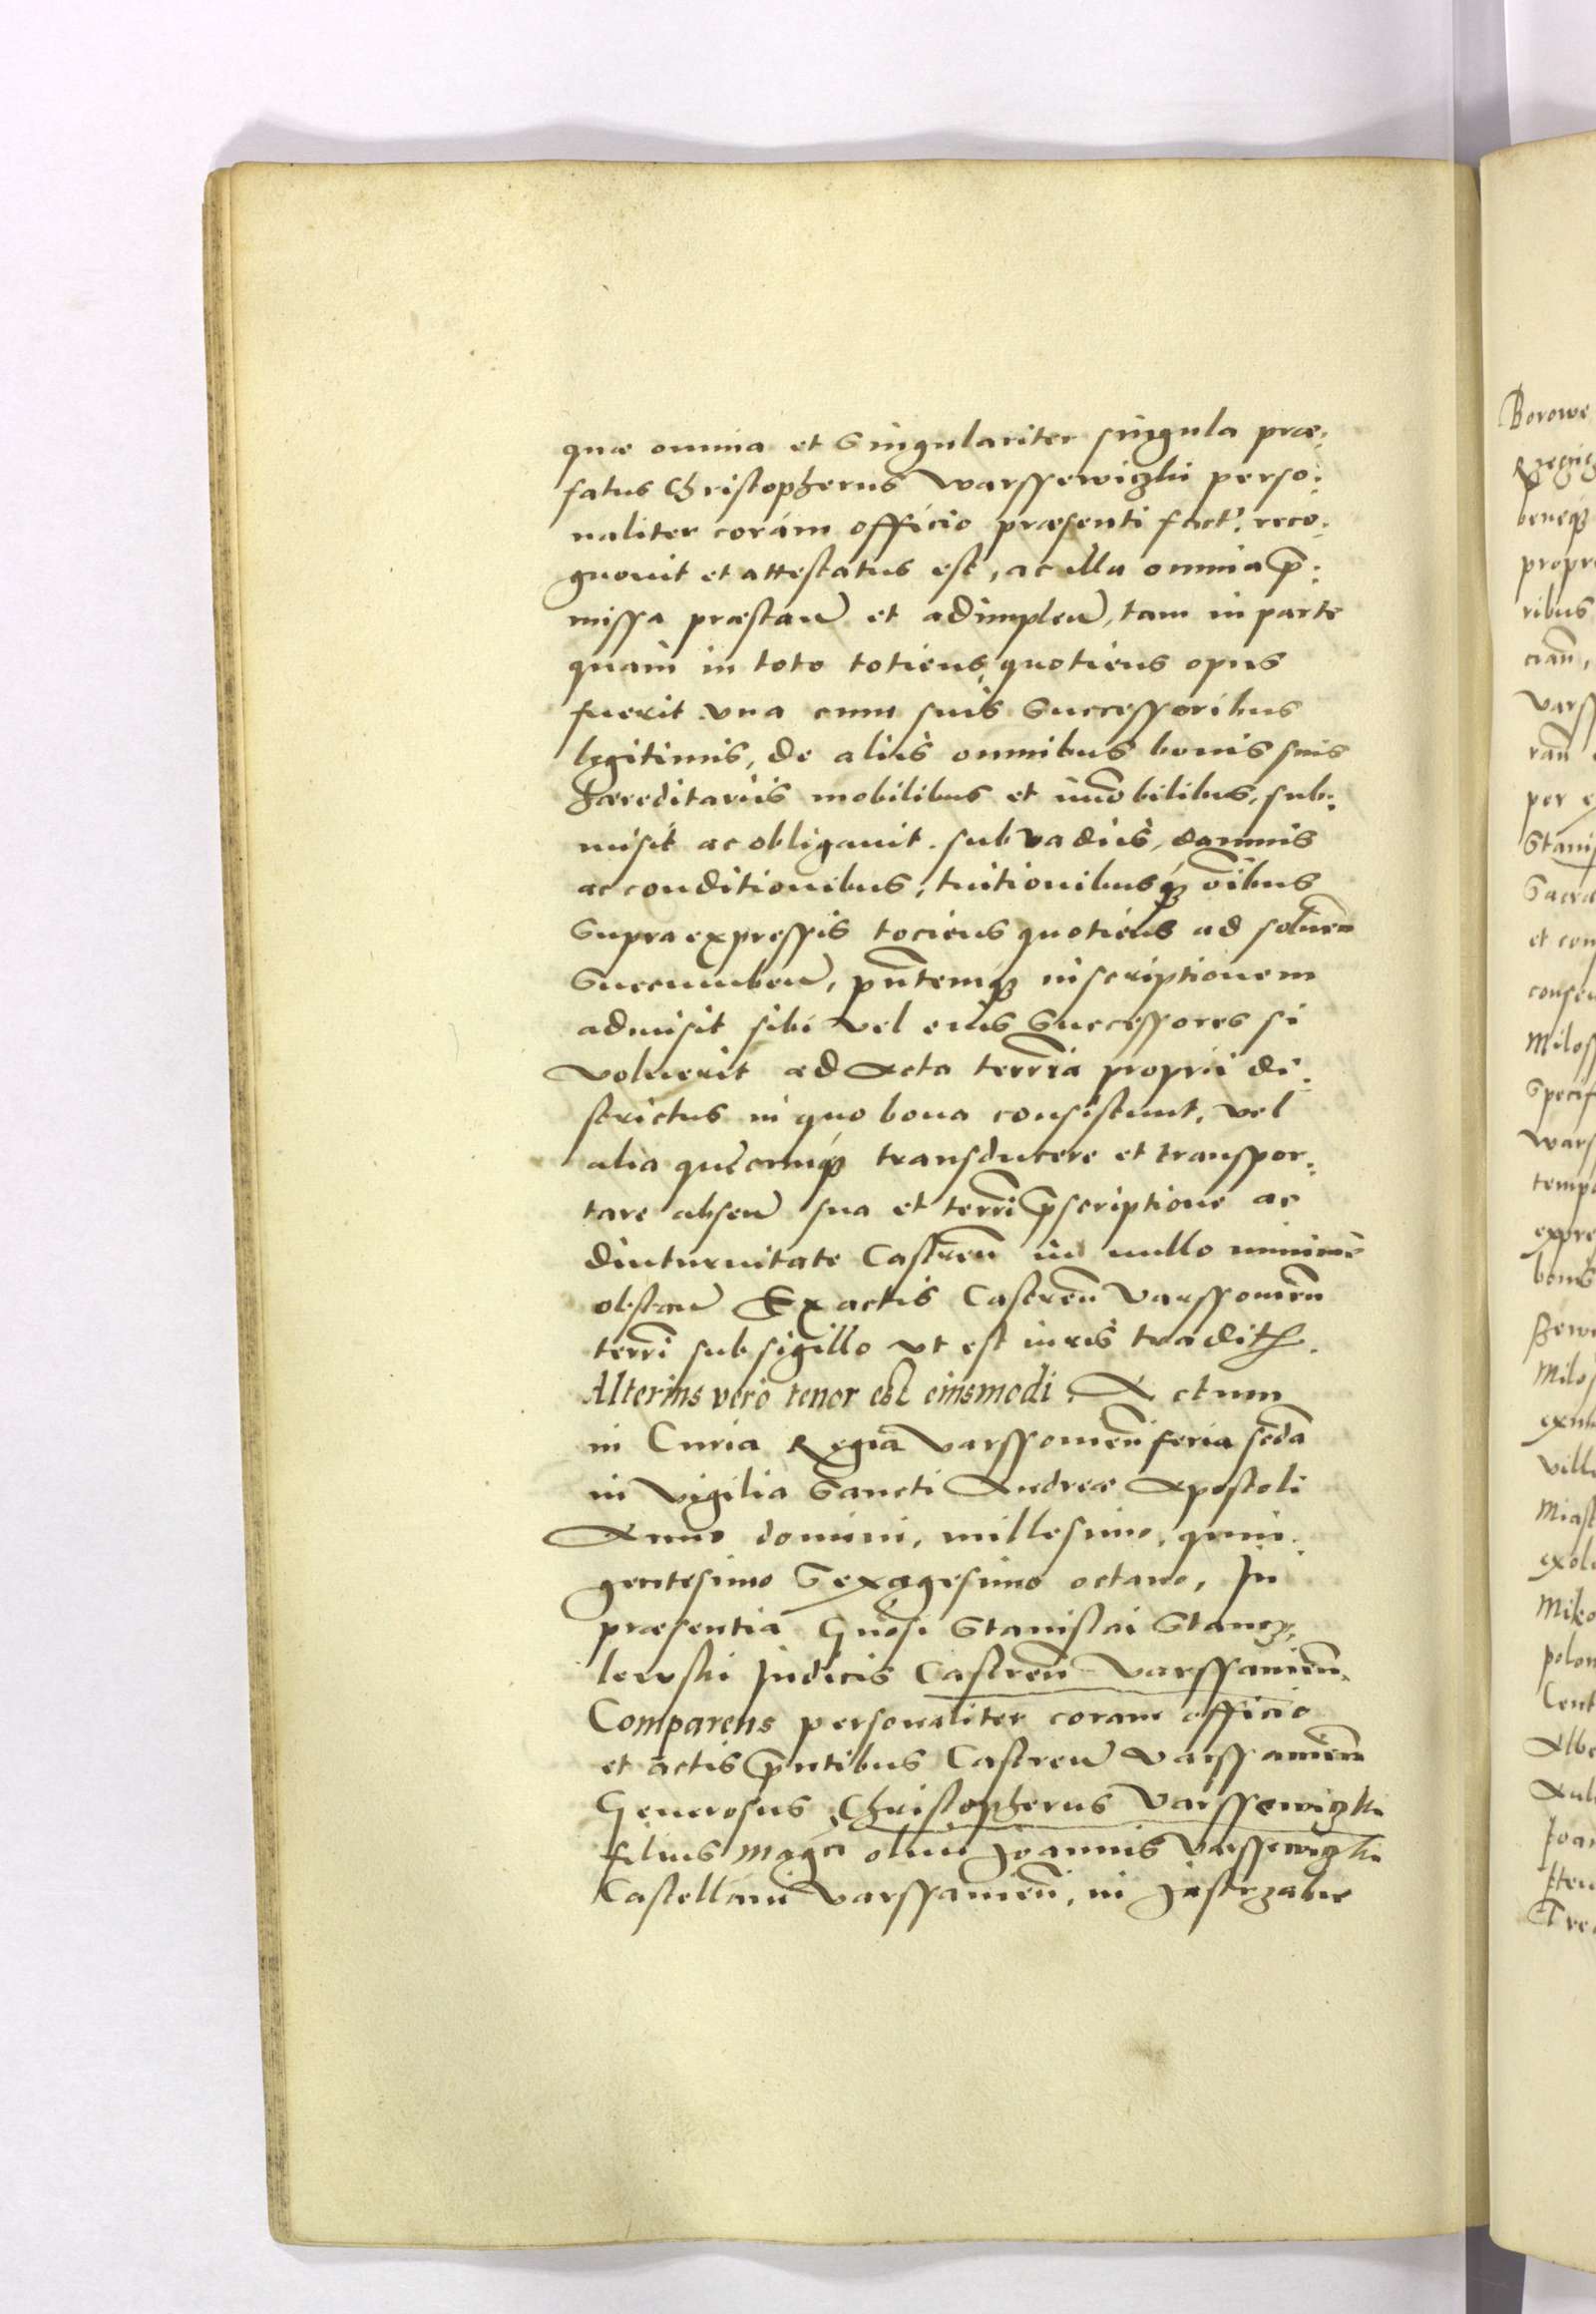 quæ omnia et Singulariter singula præ:
fatus Christopherus Warssewiczki perso:
naliter coràm officio præsenti fact' reco:
gnouit et attestatus est, ac illa omnia p̄:
missa præstan̄ et adimplen̄, tam in parte
quàm in toto totiens quotiens opus
fuerit vna cum suis Successoribus
legitimis, de alijs omnibus bonis suis
hæreditarijs mobilibus et im̄obilibus, sub:
misit ac obligauit. sub vadijs, damnis
ac conditionibus, tuitionibusq́ꝫ oībus
Supra expressis tociens quotiens ad soluen̄
Succumben̄, pn̄temq́ꝫ inscriptionem
admisit sibi vel eius Successores si
voluerit ad Acta terrīa proprij di:
strictus in quo bona consistunt, vel
alia quęcumq́ꝫ transducere et transpor:
tare absen̄ sua et terrī p̄scriptione ac
diuturnitate Castren̄ in nullo minime
obstan̄ Ex actis Castren̄ Varssouien̄
terrī sub sigillo vt est iuris tradit.
Alterius verò tenor est eiusmodi. Actum
in Curia Regia Varssouien̄ feria sc̄da
in Vigilia Sancti Andreæ Apostoli
Anno domini, millesimo, quin:
gentesimo Sexagesimo octauo, In
præsentia Gn̄osi Stanislai Stancz:
lewski Judicis Castren̄ Varssauien̄.
Comparens personaliter coram officio
et actis p̄ntibus Castren̄ Varssauien̄
Generosus Christopherus Varssewiczki
filius Mag̃ci olim Joannis Varssewiczki
Castellani Varssauien̄, in Jastrzabie
Borowe
beneqꝫ
propr
ribus
cian̄,
Vars
ran̄
per
Stanis
Sacra
et con
consen
Miloss
Specif
Wars
temp
expre
bonis
Milos
exn
Vill
Miast
exol
Miko
polon
Cent
Albe
Joan